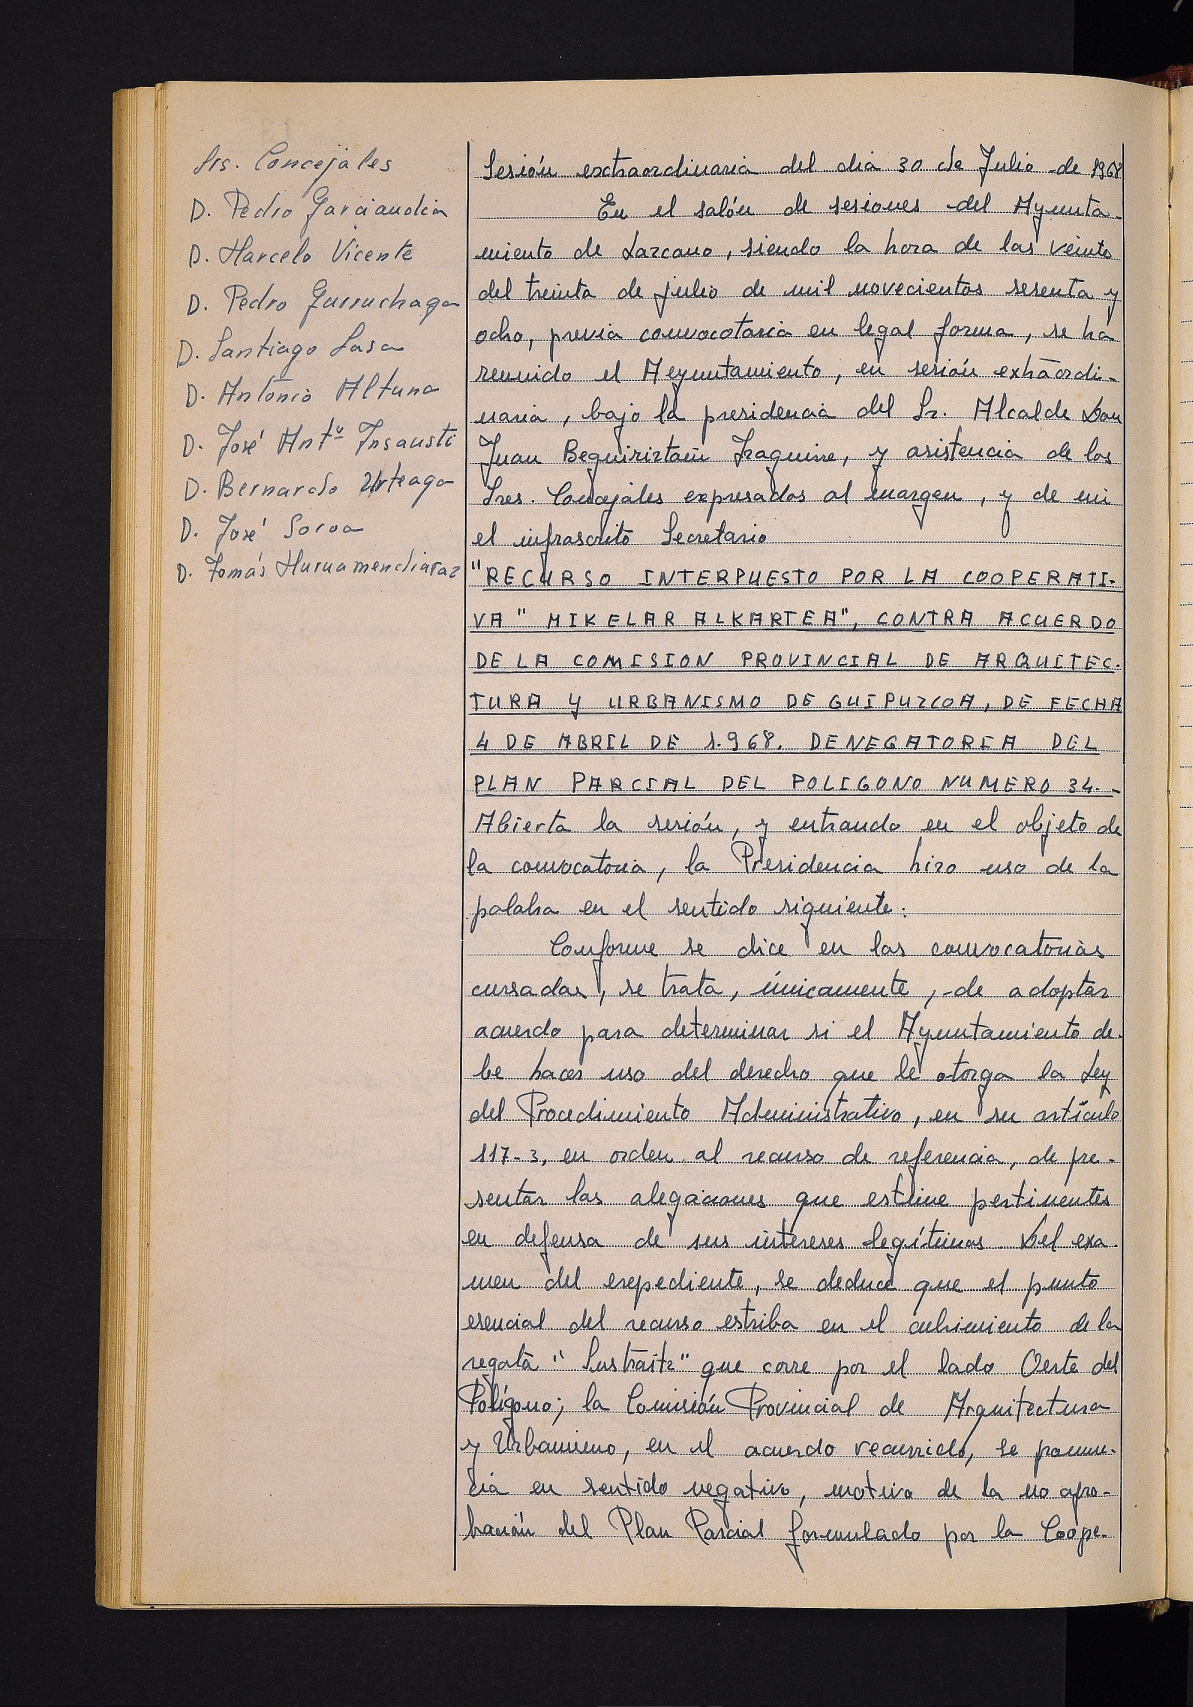 Srs. Concejales
D. Pedro Garciandia
D. Marcelo Vicente
D. Pedro Gurruchaga
D. Santiago Sasa
D. Antonio Altuna
D. José Antº Insausti
D. Bernardo Urteaga
D. José Soroa
D. Tomás Muruamendiaraz
Sesión extraordinaria del dia 30 de Julio de 1968
En el salón de sesiones del Ayunta-
miento de Lazcano, siendo la hora de las veinte
del treinta de julio de mil novecientos sesenta y
ocho, previa convocotaria en legal forma, se ha
reunido el Aeyuntamiento, en sesión extraordi-
naria, bajo la presidencia del Sr. Alcalde Don
Juan Beguiriztain Iraguirre, y asistencia de los
Sres. Concejales expresados al margen, y de mi
el infrascrito Secretario
"RECURSO INTERPUESTO POR LA COOPERATI-
VA "MIKELAR ALKARTEA", CONTRA ACUERDO
DE LA COMISION PROVINCIAL DE ARQUITEC-
TURA Y URBANISMO DE GUIPUZCOA, DE FECHA
4 DE ABRIL DE 1.968. DENEGATORIA DEL
PLAN PARCIAL DEL POLIGONO NUMERO 34.-
Abierta la sesión, y entrando en el objeto de
la convocatoria, la Presidencia hizo uso de la
palabra en el sentido siguiente:
Conforme se dice en las convocatorias
cursadas, se trata, únicamente, de adoptar
acuerdo para determinar si el Ayuntamiento de-
be hacer uso del derecho que le otorga la Ley
del Procedimiento Administrativo, en su artículo
117-3, en orden al recurso de referencia, de pre-
sentar las alegaciones que estime pertinentes
en defensa de sus intereses legítimos. Del exa-
men del expediente, se deduce que el punto
esencial del recurso estriba en el cubrimiento de la
regata "Sustraitz" que corre por el lado Oeste del
Polígono; la Comisión Provincial de Arquitectura
y Urbanismo, en el acuerdo recurrido, se pronun-
cia en sentido negativo, motivo de la no apro-
bación del Plan Parcial formulado por la Coope-